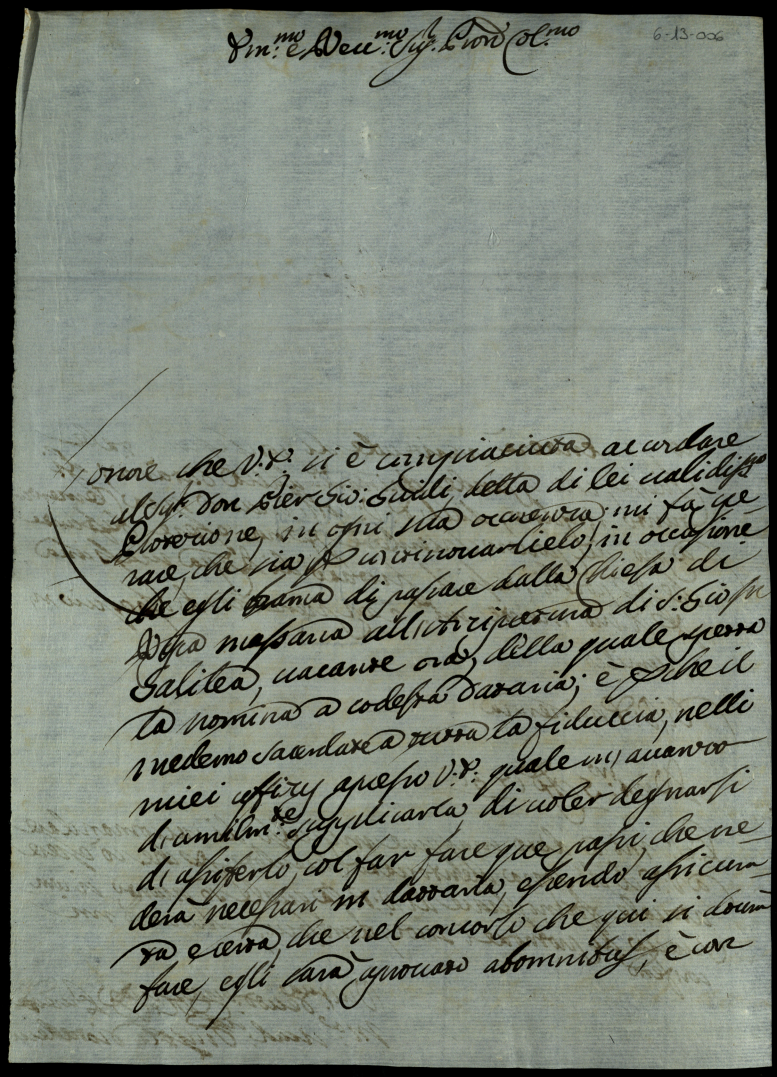 6-13-006
Em.mo e Rev.mo Sig. Pron Col.mo
onore che V.E. si è compiaciuta accordare
al Sig. Don Pier Gio: della di lei validiss.a
Protezione, in ogni sua occorenza, mi fà spe-
rare, che sia p in occasione
che egli brama di passare dalla Chiesa di
all'Arcipretura di S. Gio: in
Galilea, vacante ora, della quale spetta
la nomina a codesta Dataria; è p che il
medemo Sacerdote a tutta la fiduccia, nelli
miei officij apresso V.E. quale m'avanzo
di umilm.te supplicarla di voler degnarsi
di assisterlo, col far fare que' passi, che ve-
derà necessari in dattaria, essendo assicura-
ta e certa, che nel concorso che qui si dovrà
fare, egli sarà aprovato ab omnibus, è con